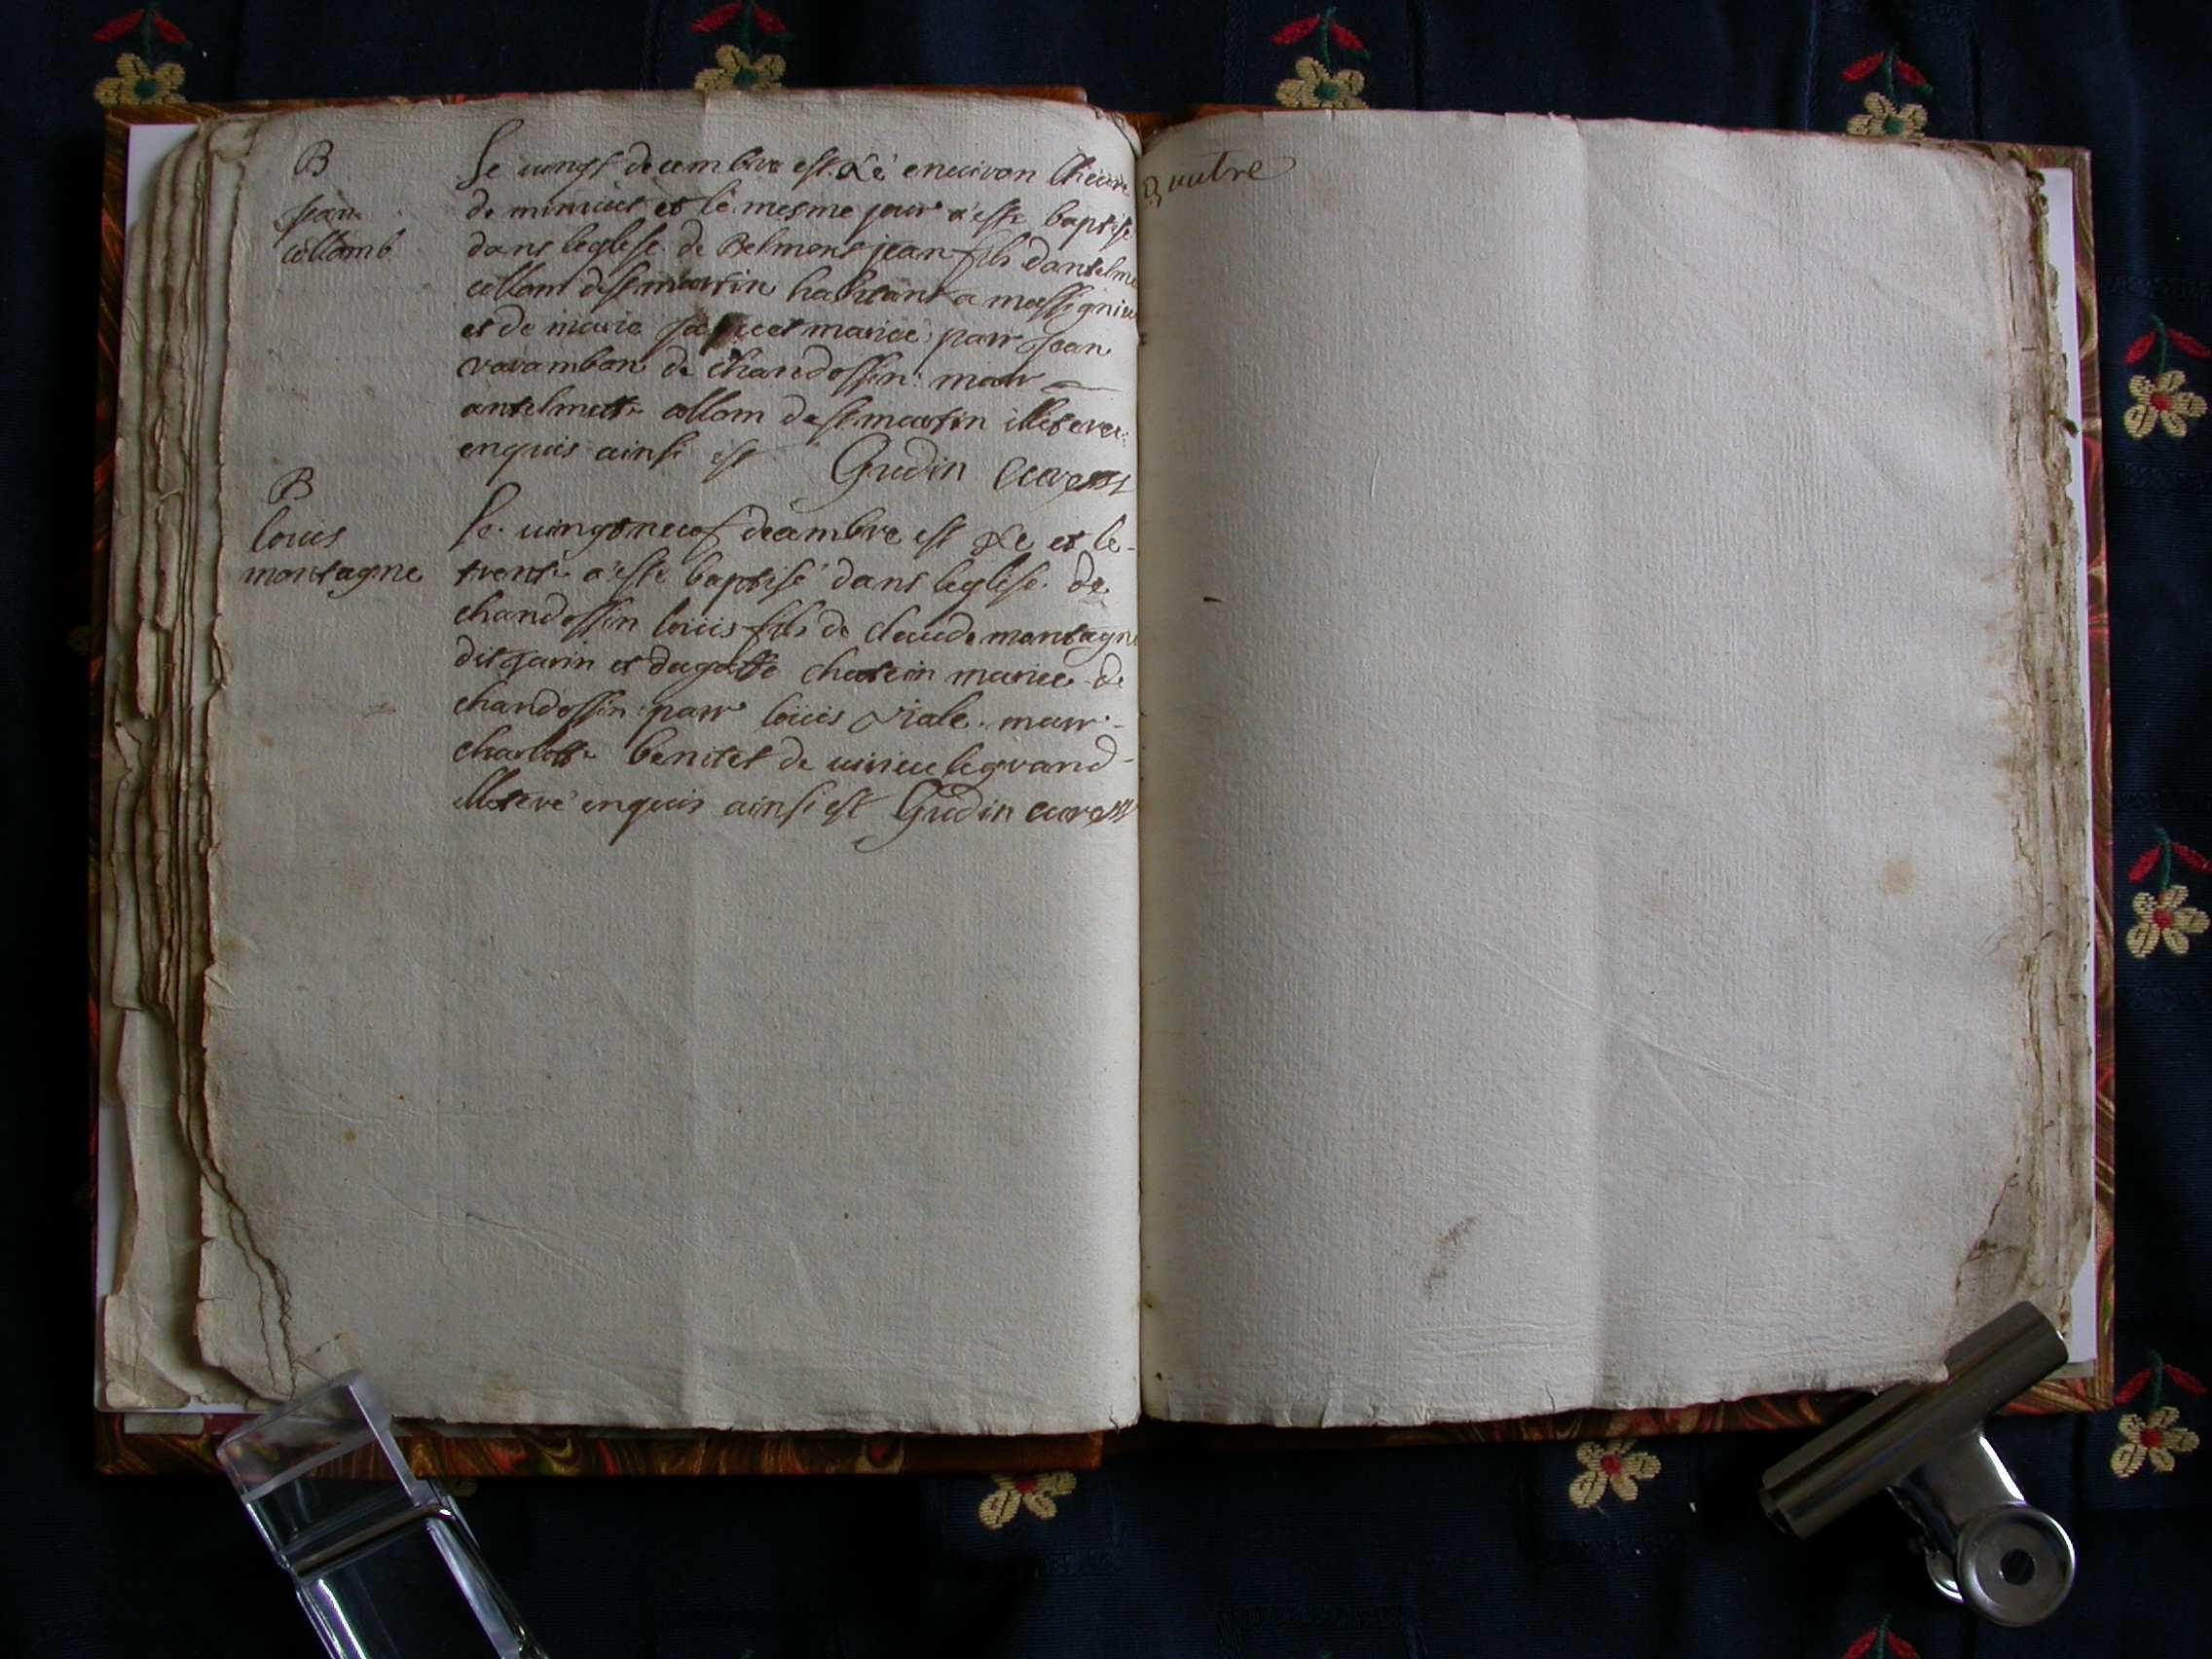 B
Jean
collomb
Le vingt decembre est né environ lheure
de minuict et le mesme jour a esté baptisé
dans leglise de Belmont jean fils dantelme
collom de st martin habitant a massignieu
et de marie mariée parr Jean
varambon de chandossin: marr
antelmette collom de st martin illeteré
enquis ainsi est Gudin Curé
B
louis
montagne
Le vingt neuf decembre est né et le
trente a esté baptisé dans leglise de
chandossin loüis fils de claude montagne
dit Jarin et dagatte chatein mariée de
chandossin: parr loüis viale. marr
charlotte benitet de virieu legrand
illeteré enquis ainsi est Gudin curé